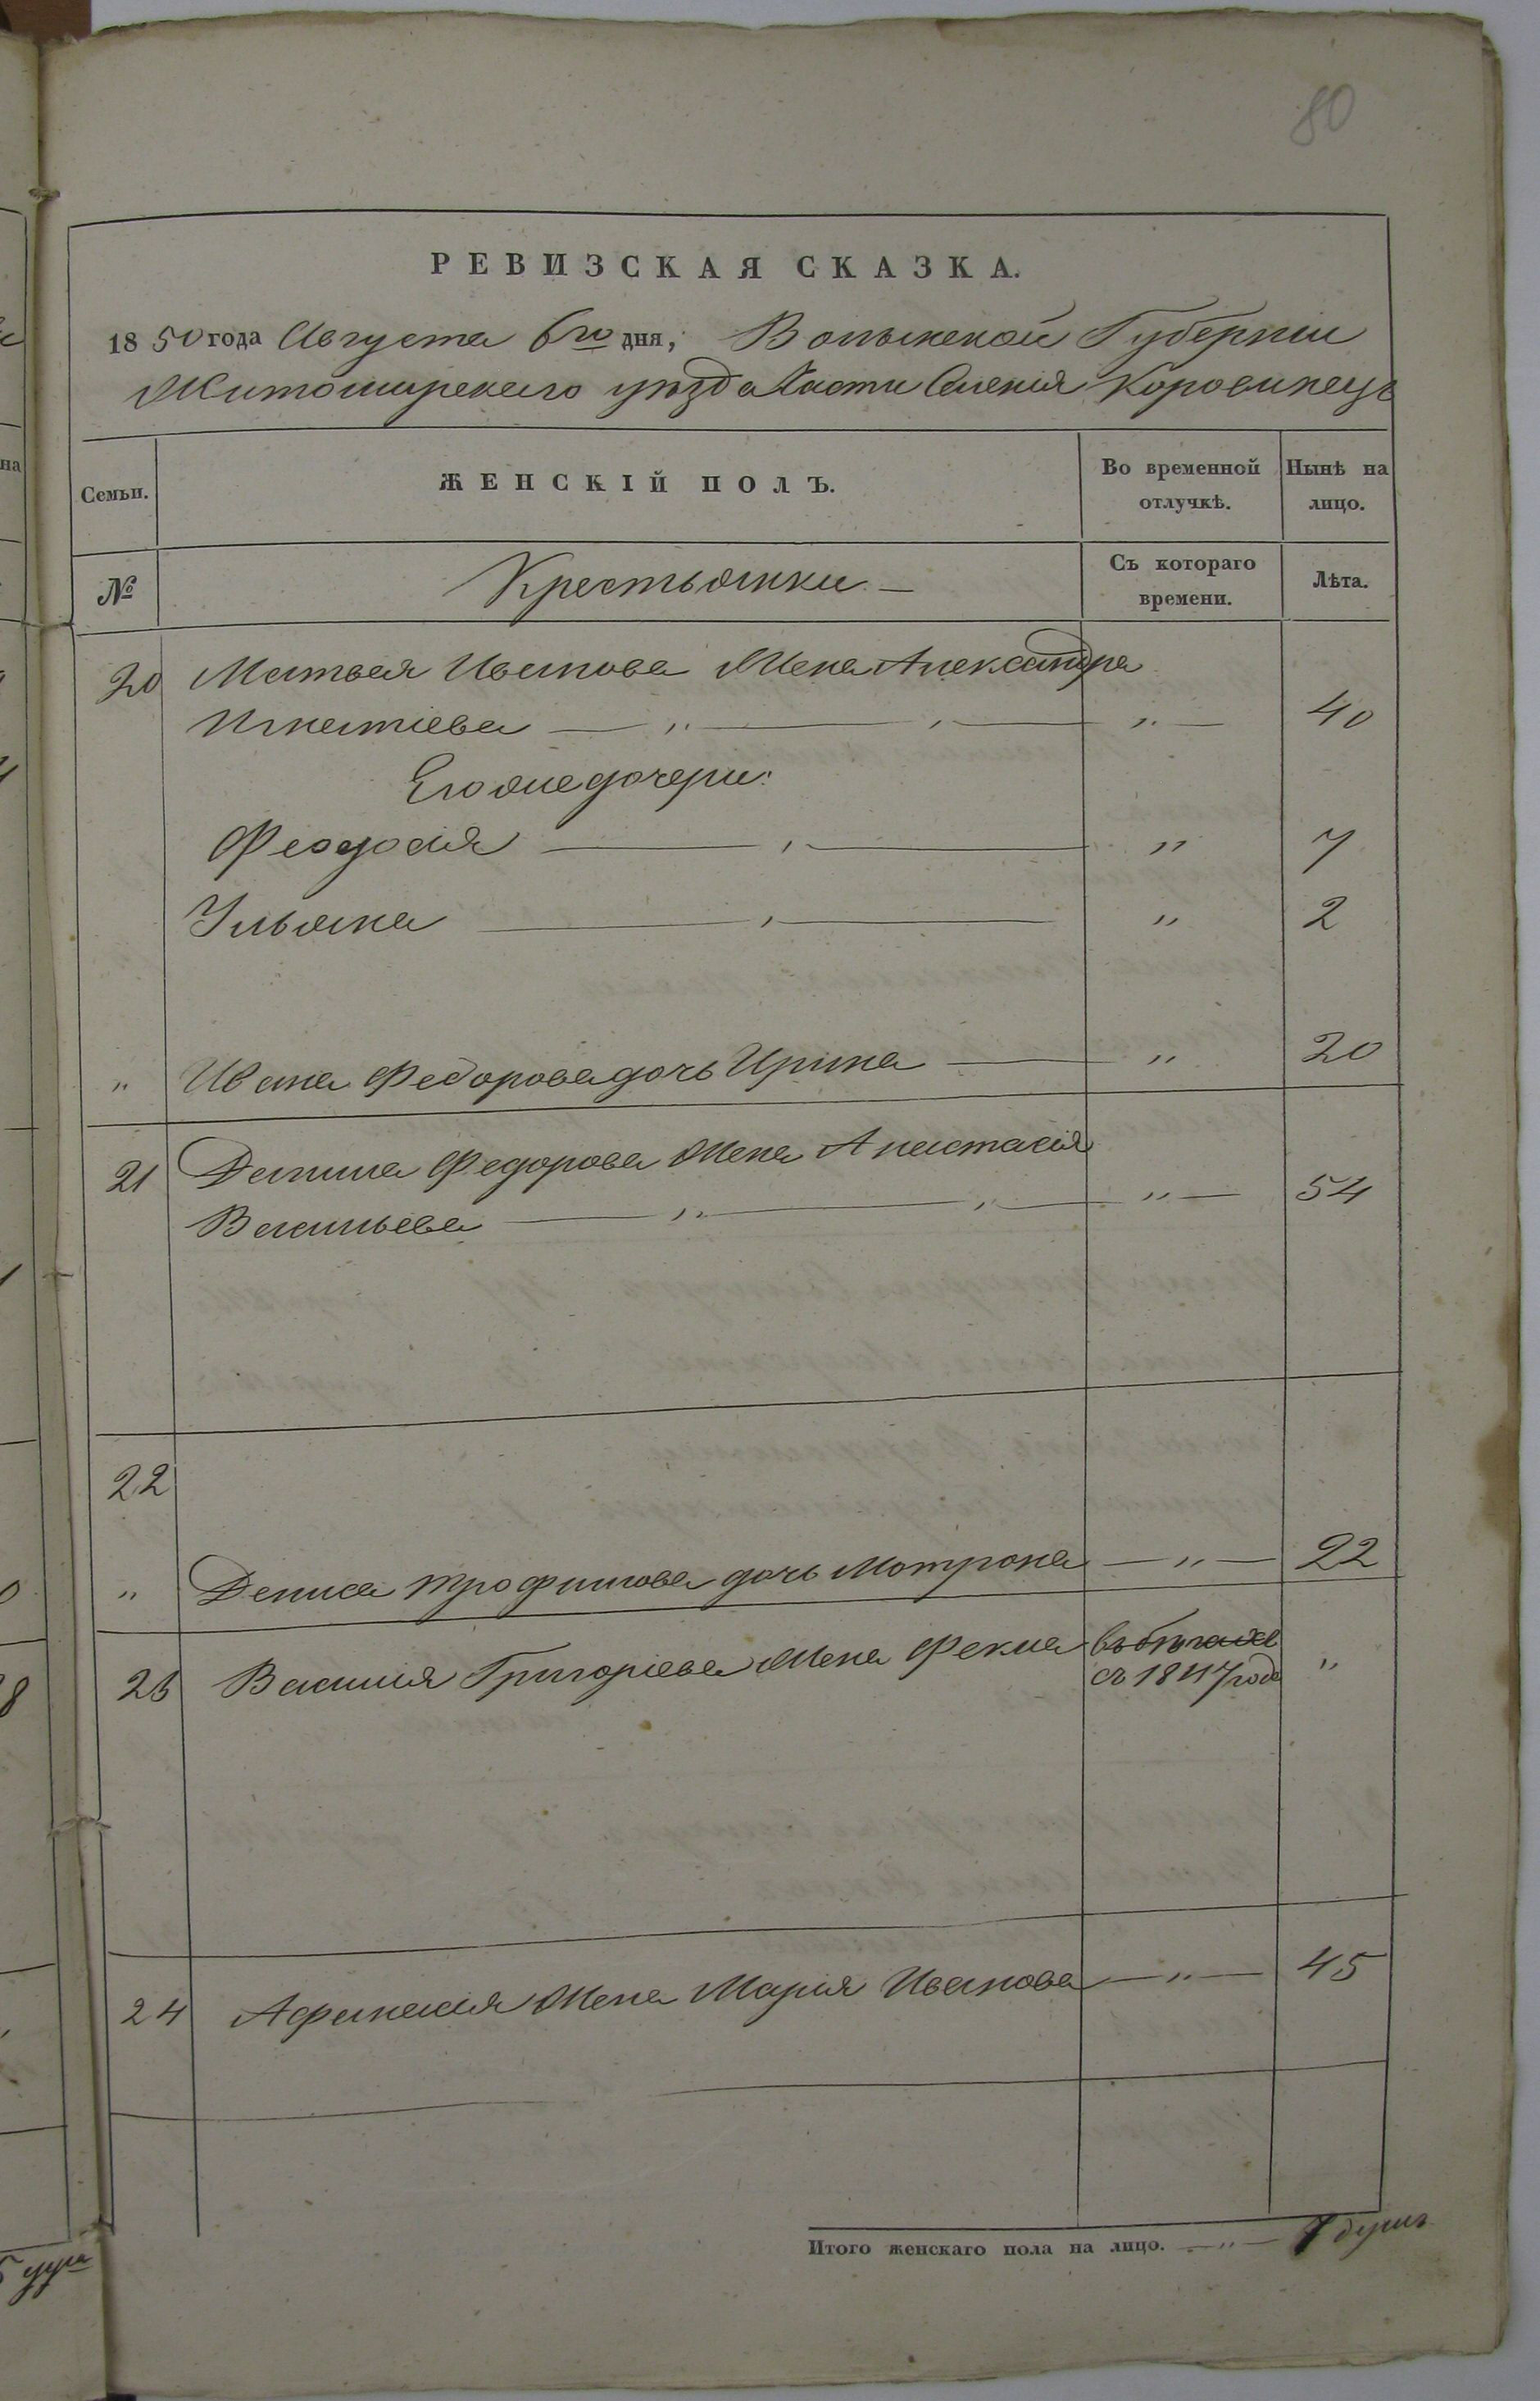 80
РЕВИЗСКАЯ СКАЗКА.
1850 года Августа 6го дня, Волынской Губерніи
Житомирскаго уѣзда Части Селенія Коровинецъ
Семьи.
ЖЕНСКІЙ ПОЛЪ.
Во временной отлучкѣ.
Нынѣ на лицо.
№
Крестьянки —
Съ котораго времени.
Лѣта.
20 Матвея Иванова Жена Александра
Игнатіева — „ — „ — „ — 40
Его же дочери:
Феодосія — „ — „ 7
Ульяна — „ — „ 2
„ Ивана Федорова дочь Ирина — „ 20
21 Данила Федорова Жена Анастасія
Васильева — „ — „ — „ — 54
22
„ Дениса Трофимова дочь Мотрона — „ — 22
23 Василія Григоріева Жена Фекла въ бѣгахъ
съ 1847 года „
24 Афанасія Жена Марія Иванова — „ — 45
Итого женскаго пола на лицо. — „ — 7 душъ